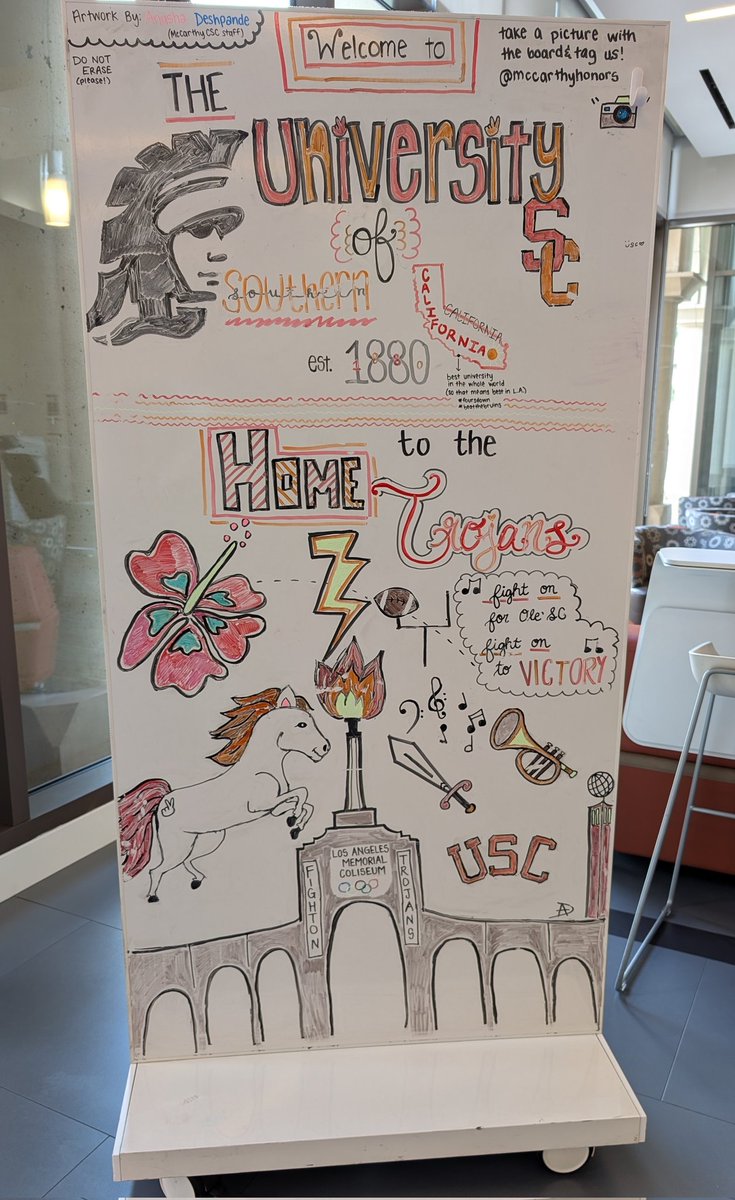 Artwork By: Anusha Deshpande
(McCarthy CSC staff)
DO NOT
ERASE
(please!)
Welcome to
take a picture with
the board & tag us!
@mccarthyhonors
THE
University
of
Southern
southern
SC
USC
CALIFORNIA
CALIFORNIA
est. 1880
best university
in the whole world
(so that means best in L.A.)
#foursdown
#beatthebruins
HOME to the
Trojans
fight on
for Ole' SC
fight on
to VICTORY
LOS ANGELES
MEMORIAL
COLISEUM
FIGHT ON
TROJANS
USC
AD